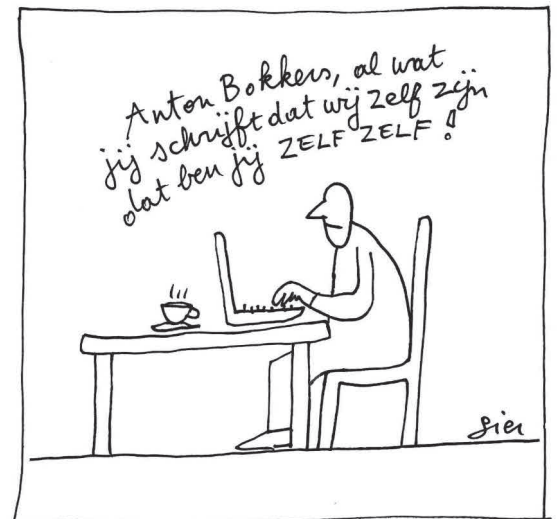 Anton Bokkers, al wat
jij schrijft dat wij zelf zijn
dat ben jij ZELF ZELF !
Sier